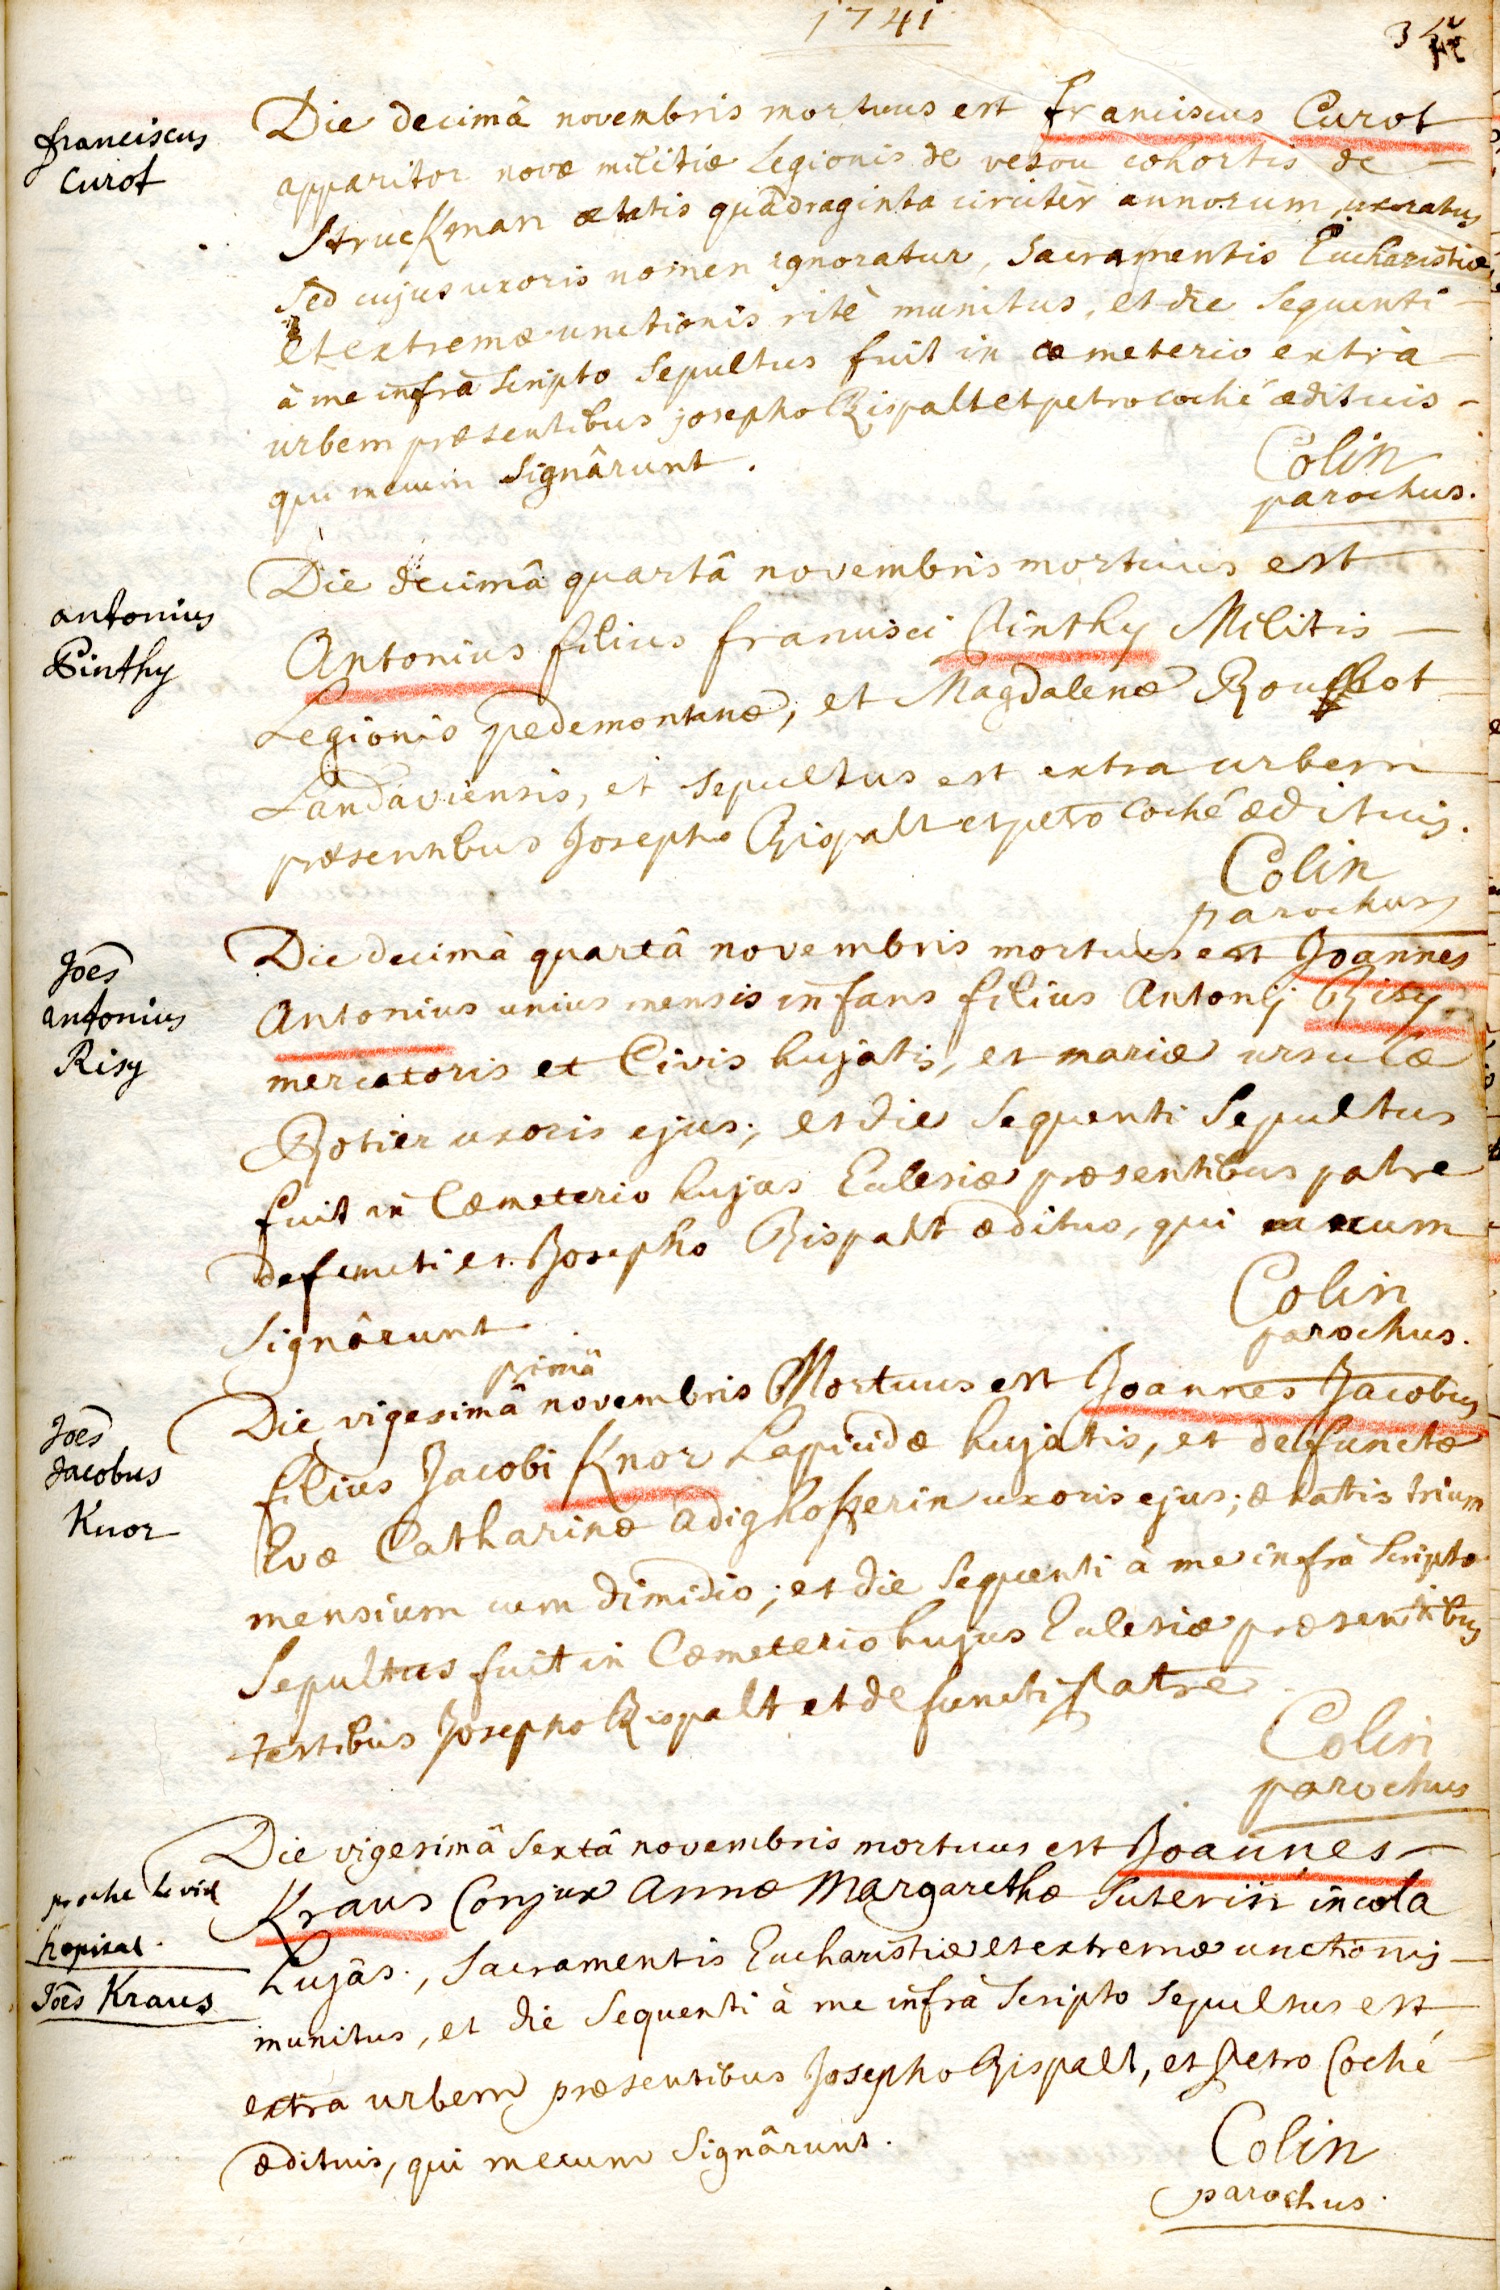 1741
franciscus
Curot
Die decimâ novembris mortuus est franciscus Curot
apparitor novæ militiæ Legionis de vesou cohortis de
Struckman ætatis quâdraginta circitèr annorum, uxoratus
sed cujus uxoris nomen ignoratur, Sacramentis Eucharistiæ
et extremæ-unctionis ritè munitus, et die sequenti
à me infrà scripto sepultus fuit in cæmeterio extrà
urbem præsentibus josepho Rispalt et petro coché ædituis
qui mecum signârunt.
Colin
parochus.
antonius
Pinthy
Die decimâ quartâ novembris mortuus est
Antonius filius francisci Pinthy Militis
Legionis pedemontanæ, et Magdalenæ
Landaviensis, et sepultus est extra urbem
præsentibus Josepho Rispalt et petro coché ædituis.
Colin
parochus
Joes
antonius
Risy
Die decimâ quartâ novembris mortuus est Joannes
Antonius unius mensis infans filius Antonij Risy
mercatoris et Civis hujatis, et mariæ ursulæ
Rotier uxoris ejus; et die sequenti sepultus
fuit in Cæmeterio hujus Eclesiæ præsentibus patre
defuncti et Josepho Rispalt ædituo, qui mecum
signârunt
Colin
parochus.
Joes
Jacobus
Knor
primâ
Die vigesimâ novembris Mortuus est Joannes Jacobus
filius Jacobi Knor Lapicidæ hujatis, et defunctæ
Evæ Catharinæ Adighofferin uxoris ejus; ætatis trium
mensium cum dimidio; et die sequenti à me infrà scripto
sepultus fuit in Cæmeterio hujus Eclesiæ præsentibus
testibus Josepho Rispalt et defuncti patre
Colin
parochus
proche le vieil
hopital.
Joes Kraus
Die vigesimâ sextâ novembris mortuus est Joannes
Kraus Conjux Annæ Margarethæ Suterin incola
hujas., Sacramentis Eucharistiæ et extremæ unctionis
munitus, et die sequenti à me infrà scripto sepultus est
extra urbem præsentibus Josepho Rispalt, et Petro Coché
ædituis, qui mecum signârunt.
Colin
parochus.